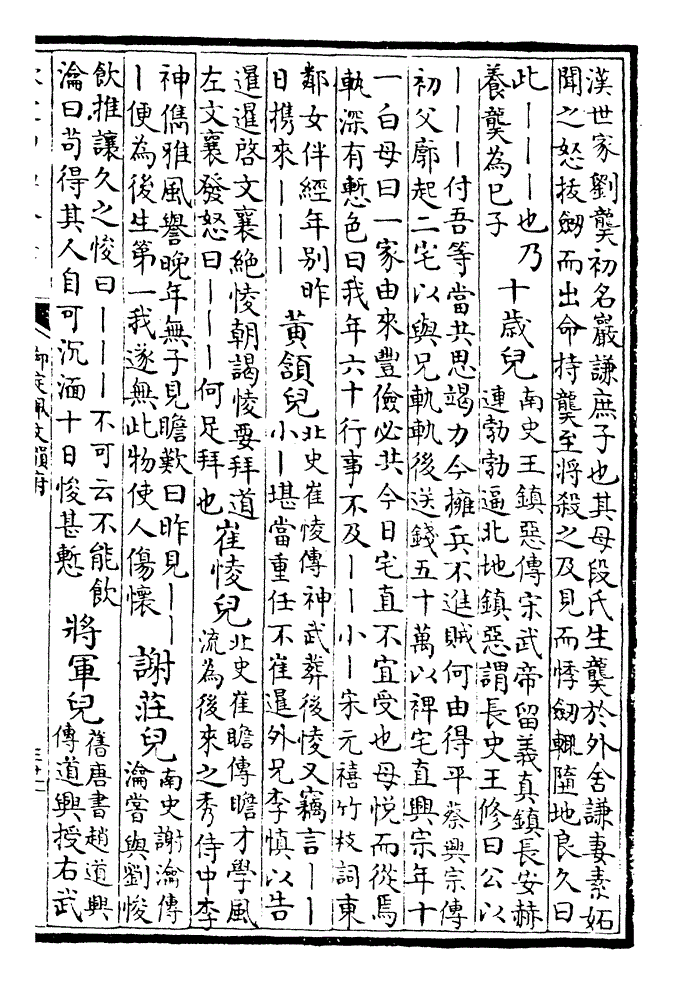 漢世家劉龑初名巖謙庶子也其母段氏生龑於外舍謙妻素妬
聞之怒拔劔而出命持龑至將殺之及見而悸劔輒墮地良久曰
此｜｜｜也乃
養龑為巳子
十歳兒
南史王鎮惡傳宋武帝留義真鎮長安赫
連勃勃逼北地鎮惡謂長史王修曰公以
｜｜｜付吾等當共思竭力今擁兵不進賊何由得平蔡興宗傳
初父廓起二宅以與兄軌軌後送錢五十萬以裨宅直興宗年十
一白母曰一家由來豐儉必共今日宅直不宜受也母悦而從焉
軌深有慙色曰我年六十行事不及｜｜小｜宋元禧竹枝詞東
鄰女伴經年别昨
日携來｜｜｜
黄頷兒
北史崔㥄傳神武葬後㥄又竊言｜｜
小｜堪當重任不崔暹外兄李慎以告
暹暹啓文襄絶㥄朝謁㥄要拜道
左文襄發怒曰｜｜｜何足拜也
崔㥄兒
北史崔瞻傳瞻才學風
流為後來之秀侍中李
神儁雅風譽晚年無子見瞻歎曰昨見｜｜
｜便為後生第一我遂無此物使人傷懷
謝莊兒
南史謝瀹傳
瀹嘗與劉悛
飲推讓久之悛曰｜｜｜不可云不能飲
瀹曰苟得其人自可沉湎十日悛甚慙
將軍兒
舊唐書趙道興
傳道興授右武
御定佩文韻府